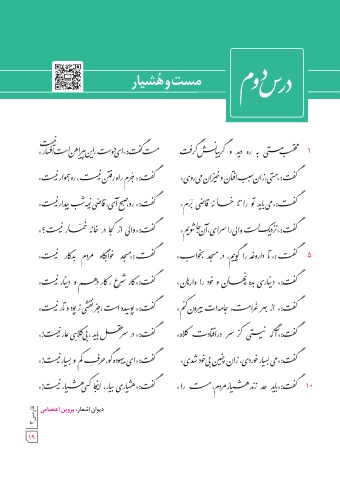 درس دوم
مست و هُشیار
۱ محتسب مستی به ره دید و گریبانش گرفت مست گفت: «ای دوست، این پیراهن است، افسار نیست»
گفت: «مستی، زان سبب افتان و خیزان می‌روی» گفت: «جرم راه رفتن نیست، ره هموار نیست»
گفت: «می‌باید تو را تا خانهٔ قاضی بَرَم» گفت: «رو صبح آی، قاضی نیمه‌شب بیدار نیست»
گفت: «نزدیک است والی را سرای، آنجا شویم» گفت: «والی از کجا در خانهٔ خمّار نیست؟»
۵ گفت: «تا داروغه را گوییم، در مسجد بخواب» گفت: «مسجد خوابگاه مردم بدکار نیست»
گفت: «دیناری بده پنهان و خود را وارهان» گفت: «کار شرع، کار درهم و دینار نیست»
گفت: «از بهر غرامت، جامه‌ات بیرون کنم» گفت: «پوسیده است، جز نقشی ز پود و تار نیست»
گفت: «آگه نیستی کز سر در افتادت کلاه» گفت: «در سر عقل باید، بی‌کلاهی عار نیست»
گفت: «می بسیار خوردی، زان چنین بیخود شدی» گفت: «ای بیهوده‌گو، حرف کم و بسیار نیست»
۱۰ گفت: «باید حد زند هشیار مردم، مست را» گفت: «هشیاری بیار، اینجا کسی هشیار نیست»
دیوان اشعار، پروین اعتصامی
فارسی ۳
۱۹